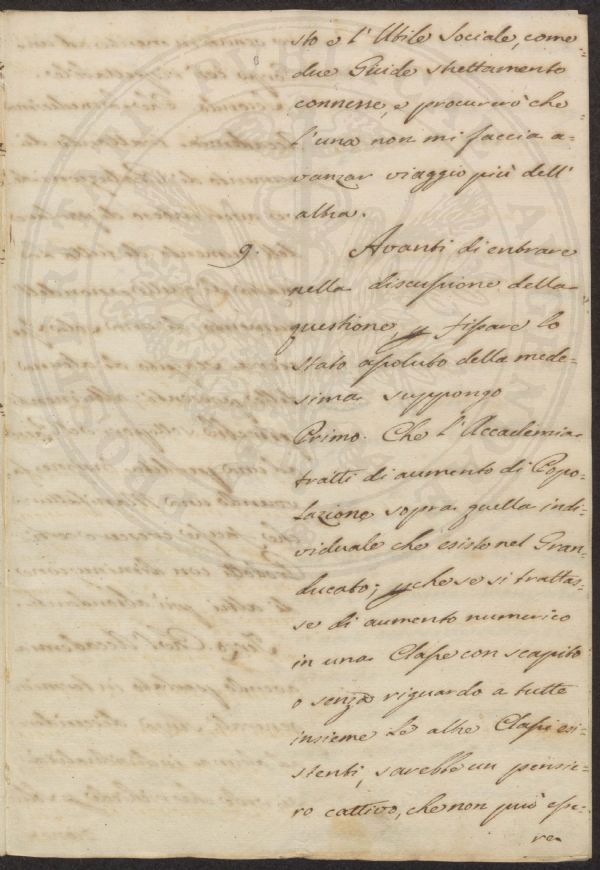 sto e l'Utile Sociale, come
due Guide strettamente
connesse, e procurerò che
l'una non mi faccia a-
vanzar viaggio più dell'
altra.
9. Avanti di entrare
nella discussione della
questione, fissare lo
stato assoluto della mede-
sima suppongo
Primo. Che l'Accademia
tratti di aumento di Popo-
lazione sopra quella indi-
viduale che esiste nel Gran-
ducato; che se si trattas-
se di aumento numerico
in una Classe con scapito
o senza riguardo a tutte
insieme le altre Classi esi-
stenti, sarebbe un pensie-
ro cattivo, che non può esse-
re